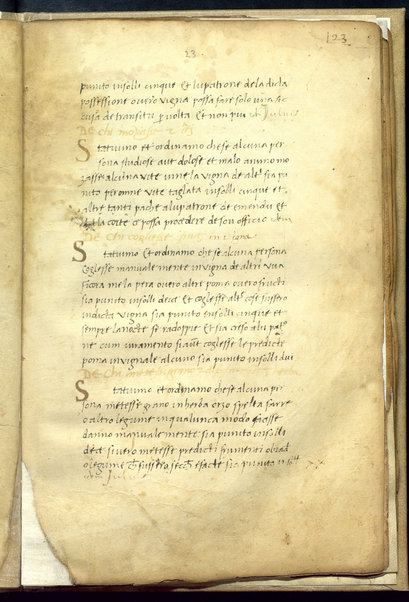 123
23
punito insolli cinque et lu patrone dela dicta
possessione overo vigna possa fare solo una ac
cusa de transitu per volta et non piu
De chi mozasse
Statuimo et ordinamo che se alcuna per
sona studiose aut dolose et malo animo mo
zasse alcuna vite in ne la vigna de altri sia pu
nito per omne vite tagliata insolli cinque et
altre tanti pache alu patrone de emendu et
la corte possa procedere de sou officio
De chi coglesse
Statuimo et ordinamo che se alcuna persona
coglesse manualemente in vigna de altri uva
ficora mela pera overo altre poma overo fructi
sia punito insolli dece et coglesse altre cose fussero
in dicta vigna sia punito insolli cinque et
sempre la nocte se radoppie et sia creso alu patro
ne cum iuramento si aut coglesse le predicte
poma in vignale alcuno sia punito insolli dui
De chi
Statuimo et ordinamo che se alcuna per
sona metesse grano in herba orzo spelta farre
o altro legume in qualunca modo ficesse
danno manualemente sia punito insolli
dece si vero metesse predicti frumenti biad
o legume fussero secch efacte sia punito